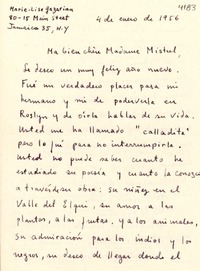 Marie-Lise Gazarian
80-15 Main Street
Jamaica 35, N.Y
4183
4 de enero de 1956
Ma bien chère Madame Mistral,
Le deseo un muy feliz año nuevo.
Fué un verdadero placer para mi
hermano y mi de poderverla en
Roslyn y de oirla hablar de su vida.
Usted me ha llamado "calladita"
pero lo fuí para no interrumpirla.
Usted no puede saber cuanto he
estudiado su poesía y cuanto la conozco
a través de su obra: su niñez en el
Valle del Elqui, su amor a las
plantas, a las frutas, y a los animales,
su admiración para los indios y los
negros, su deseo de llegar donde el